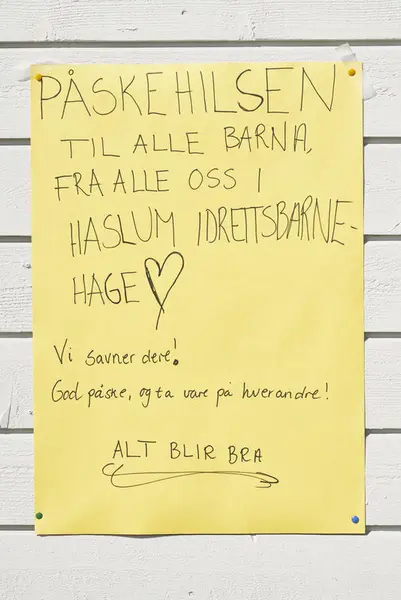 PÅSKEHILSEN
TIL ALLE BARNA,
FRA ALLE OSS I
HASLUM IDRETTSBARNE-
HAGE
Vi savner dere!
God påske, og ta vare på hverandre!
ALT BLIR BRA